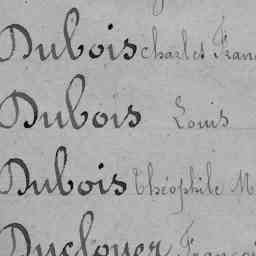 Dubois Charles Fran
Dubois Louis
Dubois Théophile M
Duclouer Françoi